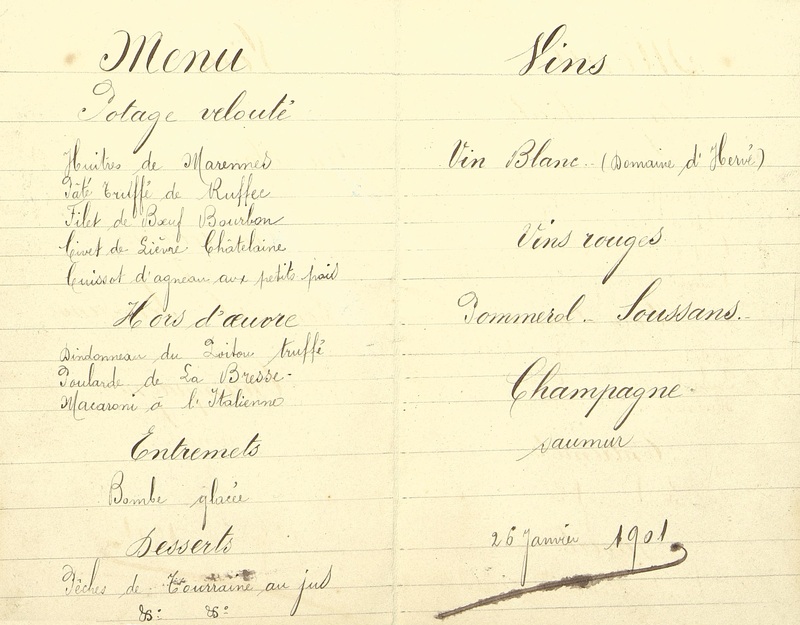 Menu
Potage velouté
Huitres de Marennes
Pâté truffé de Ruffec
Filet de Bœuf Bourbon
Civet de Lièvre Châtelaine
Cuissot d'agneau aux petits pois
Hors d'œuvre
Dindonneau du Poitou truffé
Poularde de La Bresse.
Macaroni à l'Italienne
Entremets
Bombe glacée
Desserts
Pêches de Tourraine au jus
&: &:
Vins
Vin Blanc.. (Domaine d'Hervé)
Vins rouges
Pommerol.. Soussans..
Champagne.
Saumur
26 Janvier 1901